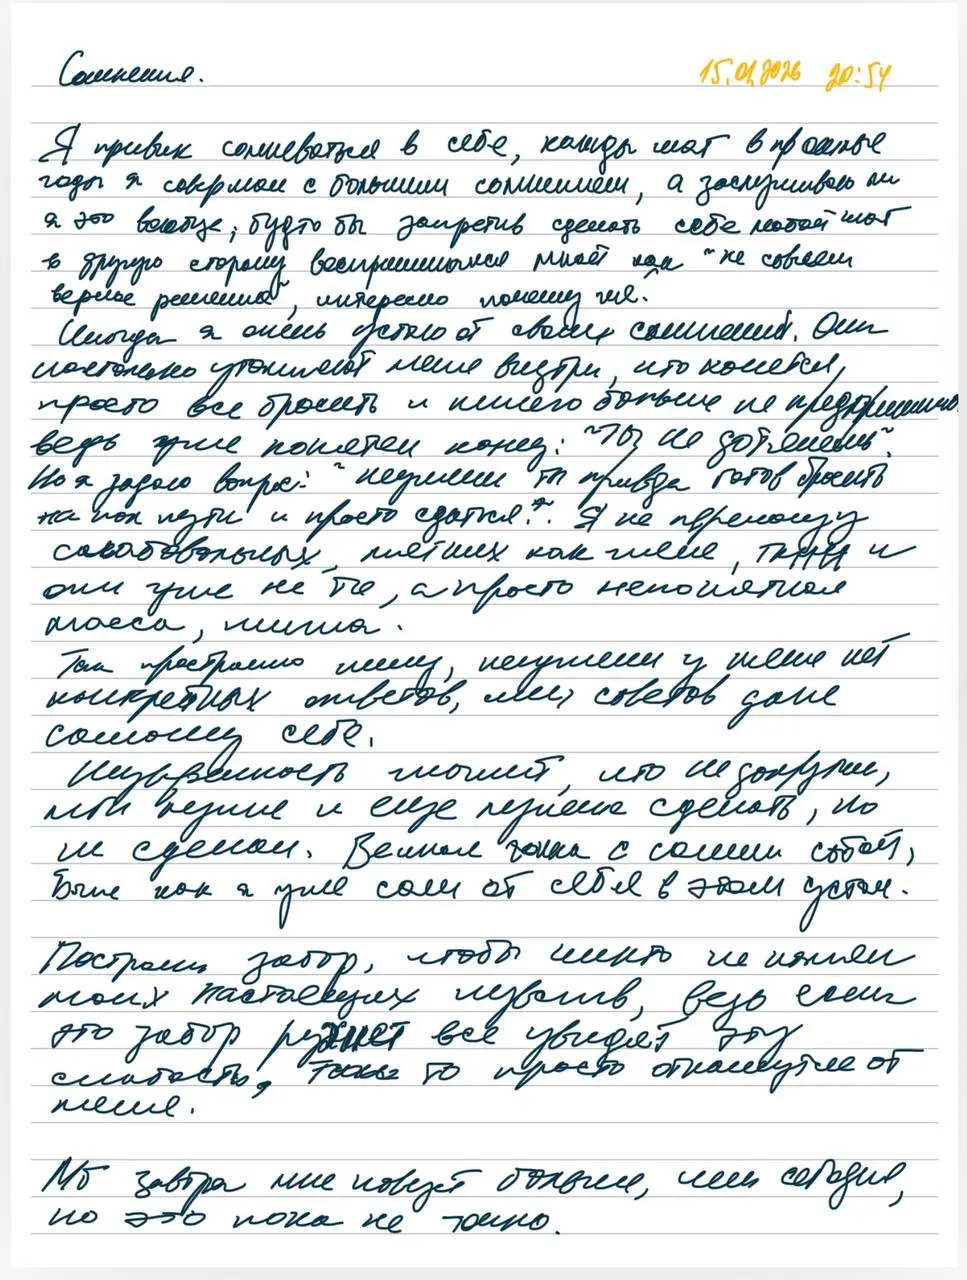 Сомнения. 15.01.2026 20:54
Я привык сомневаться в себе, кажды шаг в прошлые
годы я совершал с большим сомнением, а заслуживаю ли
я это вообще, будто бы запретив сделать себе любой шаг
в другую сторону воспринимался мной как "не совсем
верное решение", интересно почему же.
Иногда я очень устаю от своих сомнений. Они
настолько утомляют меня внутри, что хочется,
просто все бросить и ничего больше не
ведь уже понятен конец: "Ты не дотянешь".
Но я задаю вопрос: "неужели ты правда готов бросить
на пол пути и просто сдаться?". Я не переношу
таких как меня, и
они уже не те, а просто непонятная
масса,
Так пространно пишу, неужели у меня нет
конкретных ответов, или советов даже
самому себе.
мыслей, что не докрутил,
мог лучше и еще нужно сделать, но
не сделал. Вечная гонка с самим собой,
Будто как я уже сам от себя в этом устал.
Построил забор, чтобы никто не понял
моих настоящих чувств, ведь если
это забор рухнет все увидят эту
слабость, то просто откажутся от
меня.
Мб завтра мне повезёт больше, чем сегодня,
но это пока не точно.